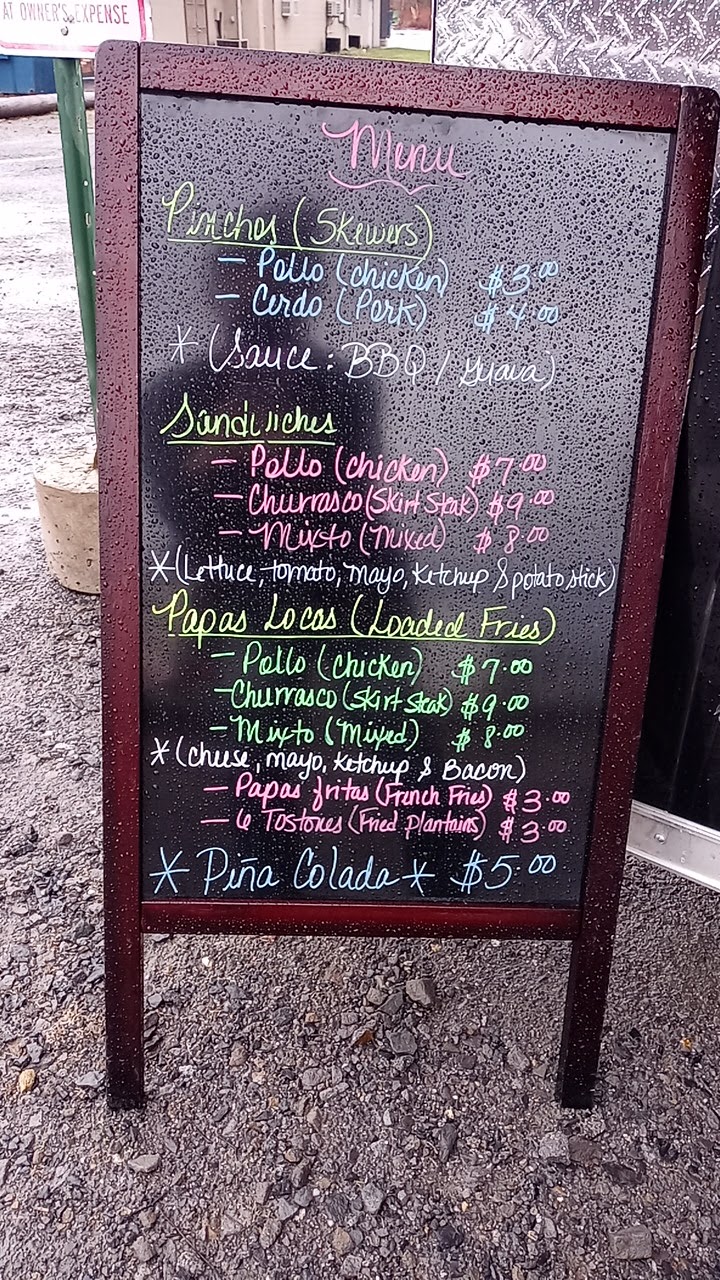 AT OWNER'S EXPENSE
Menu
Pinchos (Skewers)
- Pollo (chicken) $3.00
- Cerdo (Pork) $4.00
* (Sauce: BBQ / Guava)
Sandwiches
- Pollo (chicken) $7.00
- Churrasco (Skirt Steak) $9.00
- Mixto (Mixed) $8.00
* (Lettuce, tomato, mayo, Ketchup & potato stick)
Papas Locas (Loaded Fries)
- Pollo (chicken) $7.00
- Churrasco (skirt steak) $9.00
- Mixto (Mixed) $8.00
* (cheese, mayo, ketchup & Bacon)
- Papas fritas (French Fries) $3.00
- 6 Tostones (Fried plantains) $3.00
* Piña Colada * $5.00